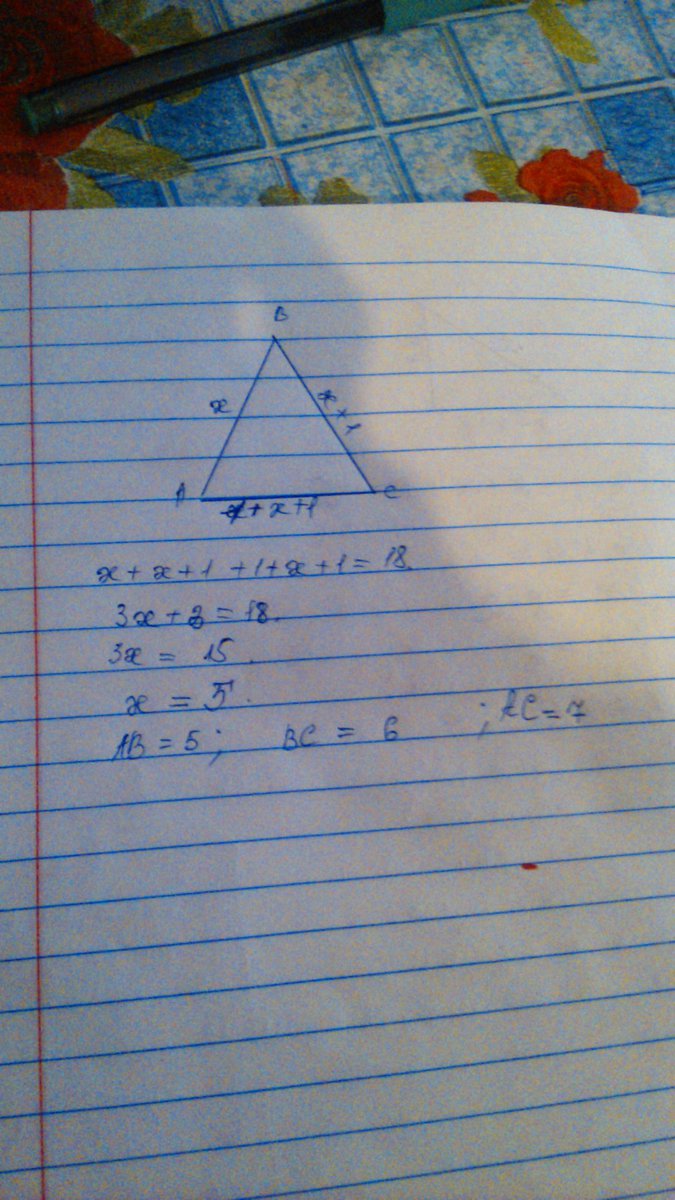 B
x
x+1
A
C
1+x+1
x + x + 1 + 1 + x + 1 = 18.
3x + 3 = 18.
3x = 15.
x = 5.
AB = 5; BC = 6 ; AC = 7